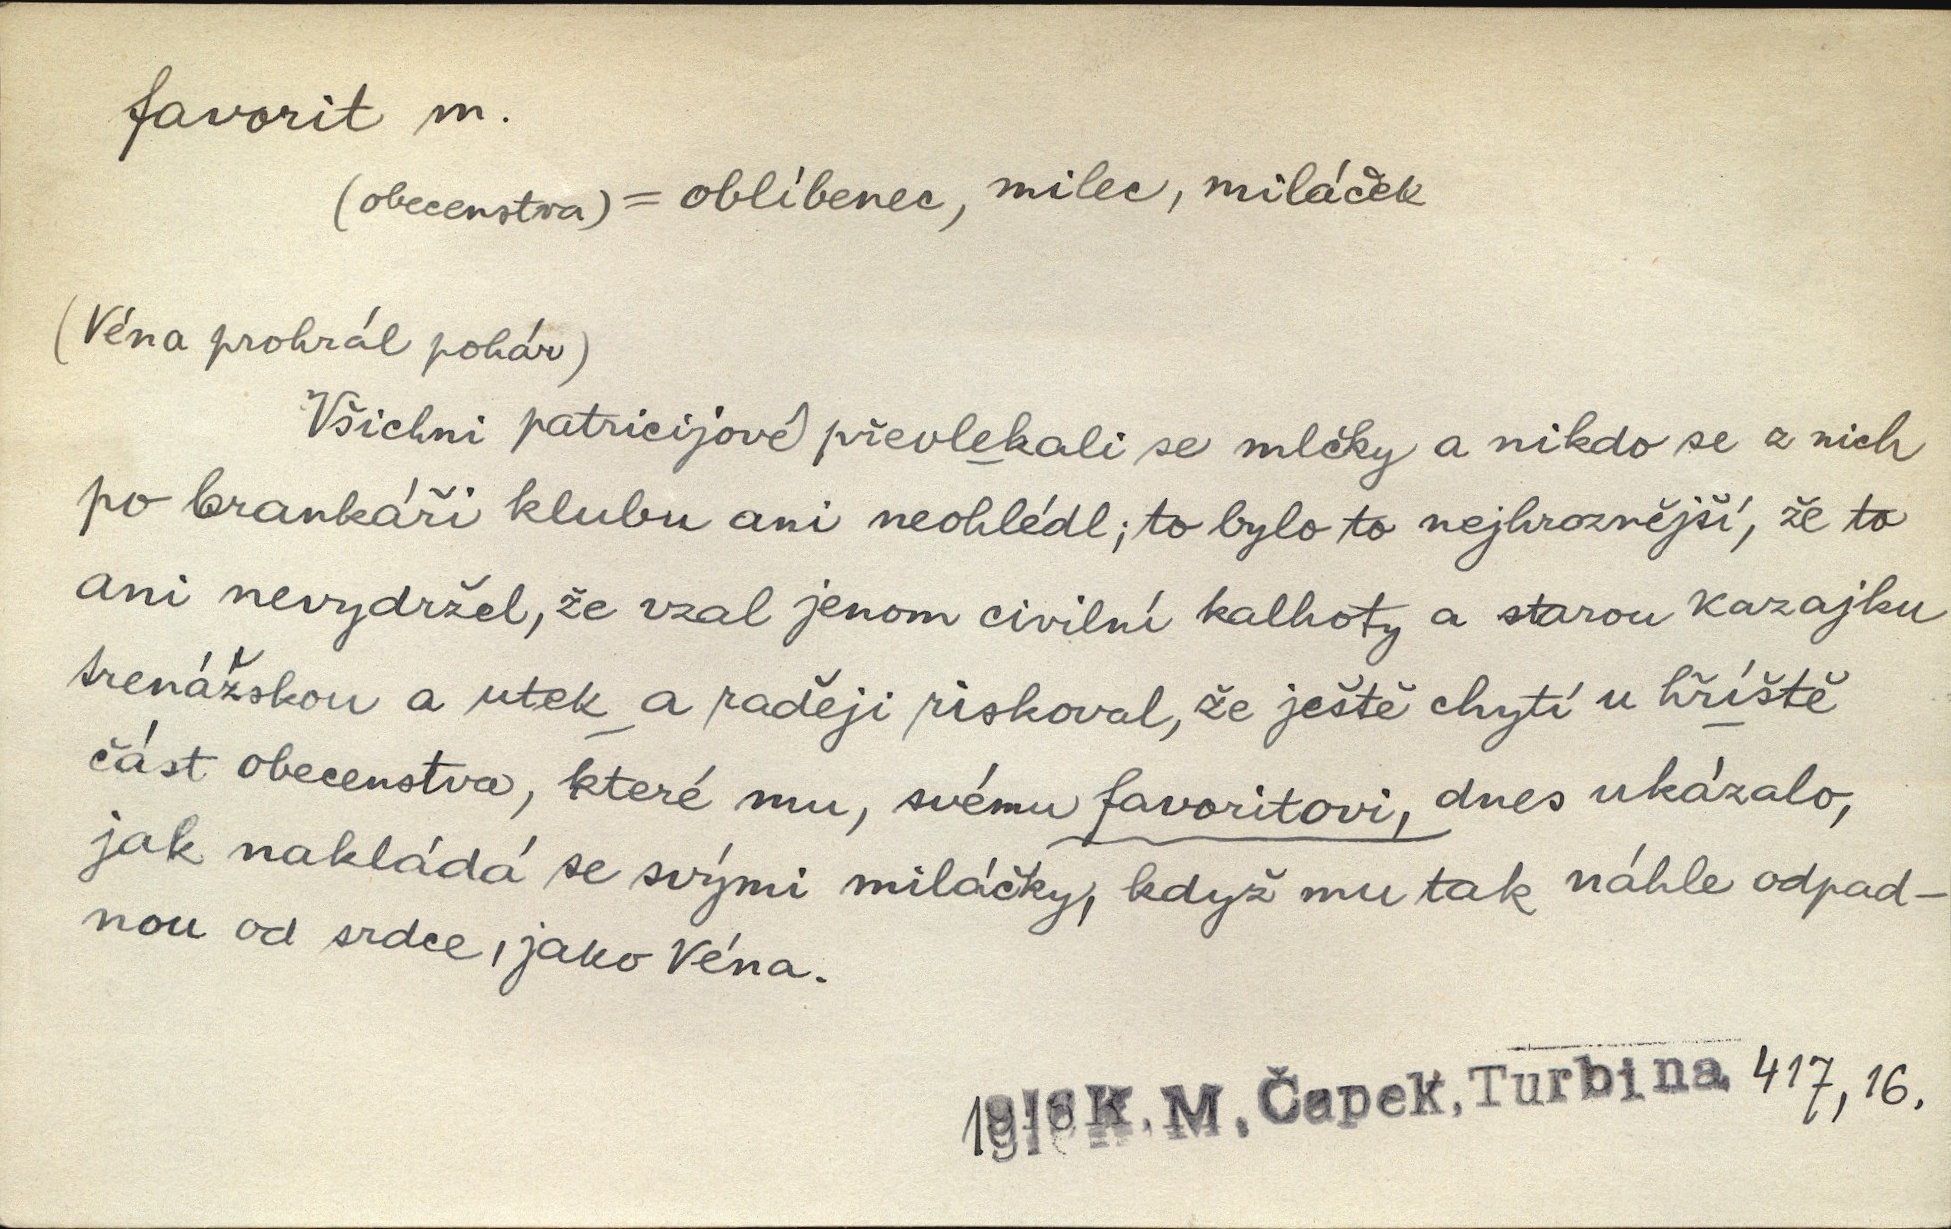 favorit m.
(obecenstva) = oblíbenec, milec, miláček
(Véna prohrál pohár)
Všichni patricijové převlekali se mlčky a nikdo se z nich
po brankáři klubu ani neohlédl; to bylo to nejhroznější, že to
ani nevydržel, že vzal jenom civilní kalhoty a starou kazajku
trenážskou a utek a raději riskoval, že ještě chytí u hříště
část obecenstva, které mu, svému favoritovi, dnes ukázalo,
jak nakládá se svými miláčky, když mu tak náhle odpad-
nou od srdce, jako Véna.
K. M. Čapek, Turbina 417, 16.